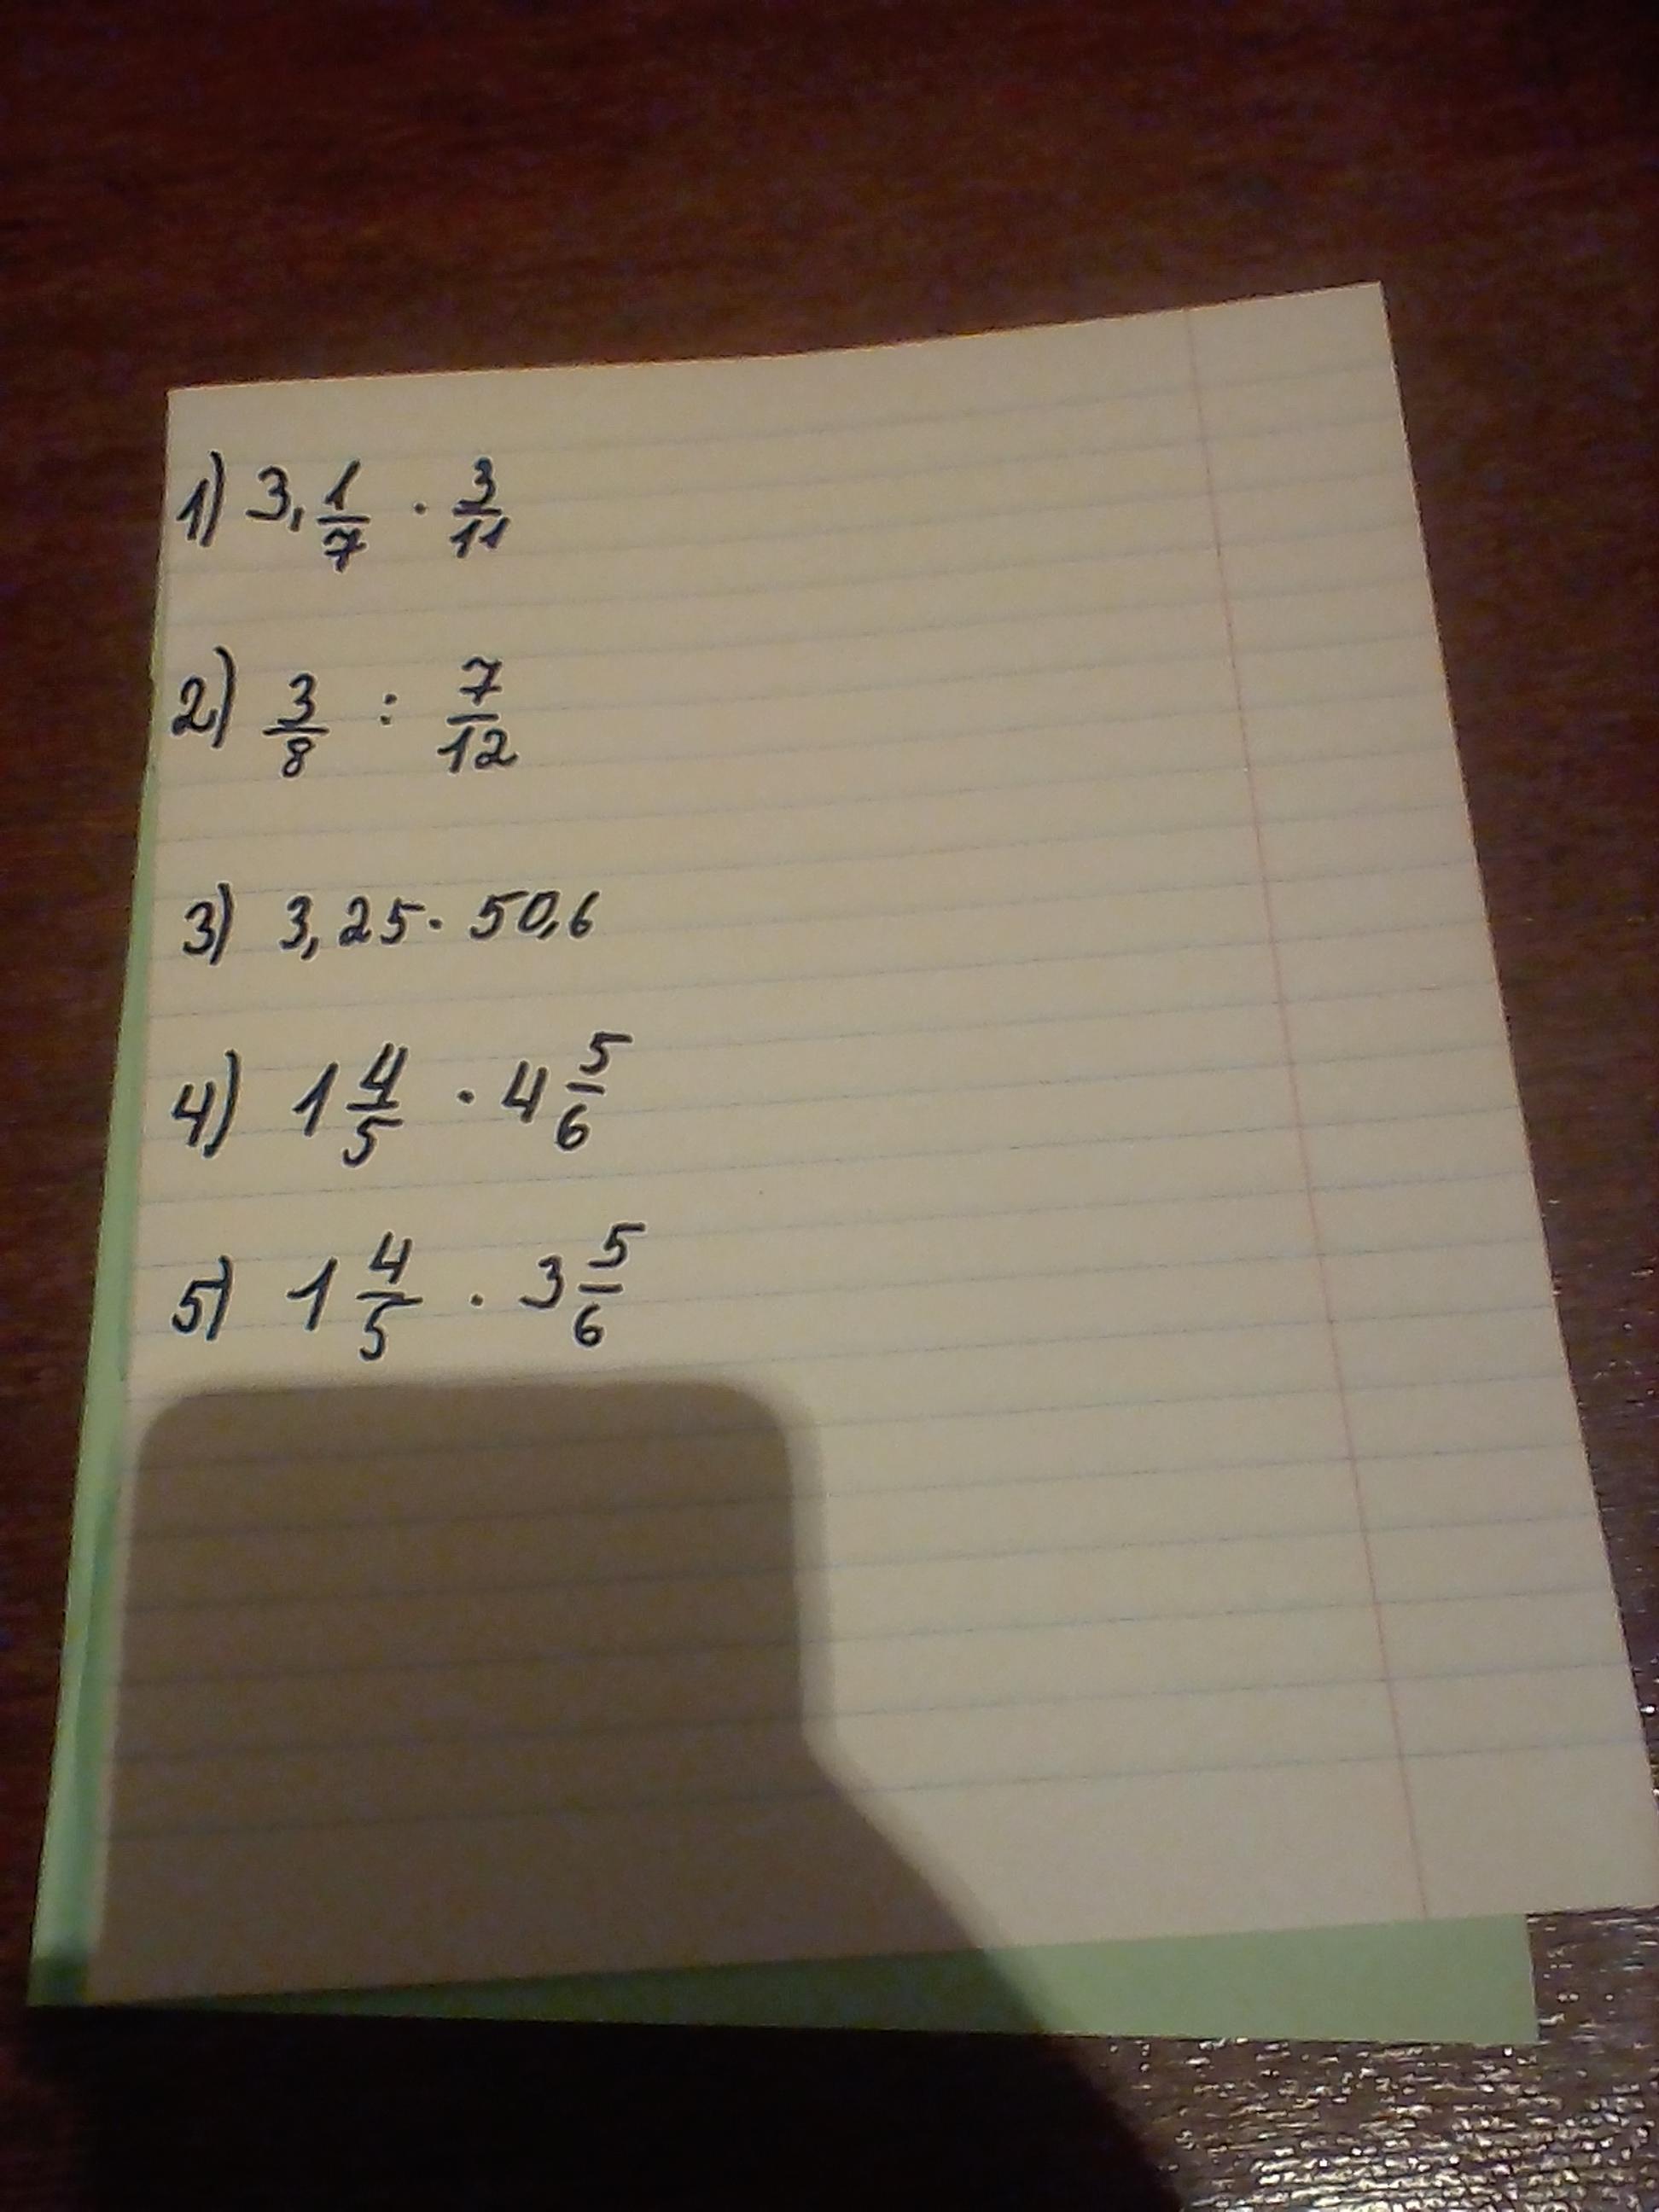 1) 3, 1/7 · 3/11
2) 3/8 : 7/12
3) 3,25 · 50,6
4) 1 4/5 · 4 5/6
5) 1 4/5 · 3 5/6